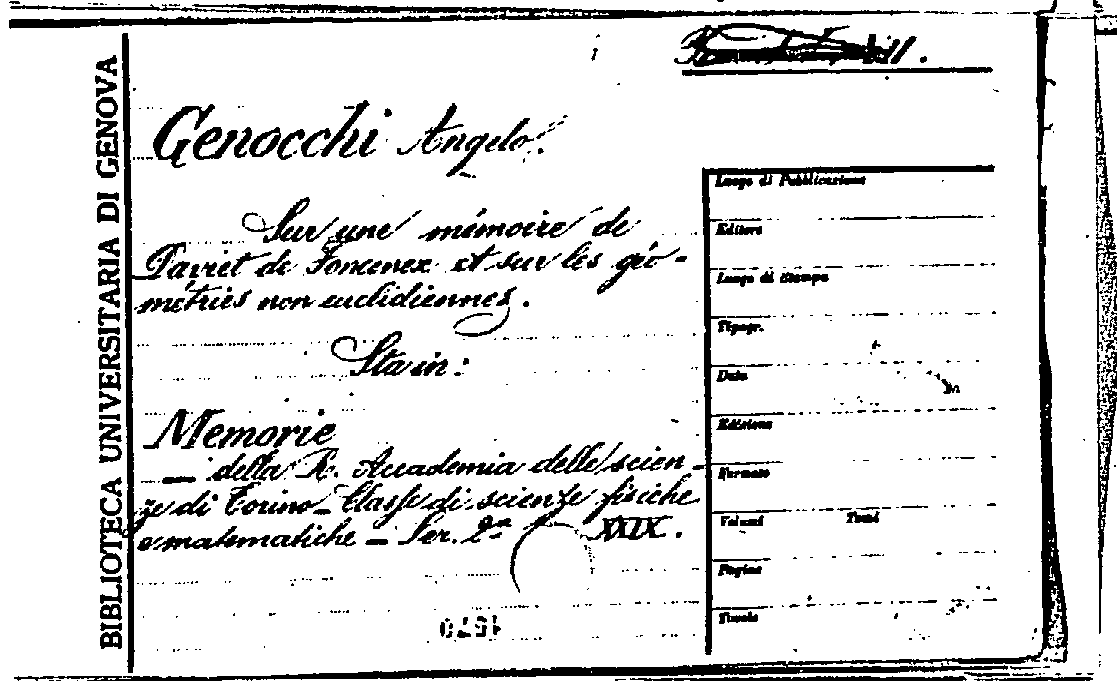 BIBLIOTECA UNIVERSITARIA DI GENOVA
Genocchi Angelo.
Sur une mémoire de
Daviet de Foncenex et sur les géo-
métries non euclidiennes.
Sta in:
Memorie
— della R. Accademia delle scien-
ze di Torino - Classe di scienze fisiche
e matematiche — Ser. 2ª XXIX.
Luogo di Pubblicazione
Editore
Luogo di stampa
Tipogr.
Data
Edizione
Formato
Volumi Tomi
Pagine
Tavole